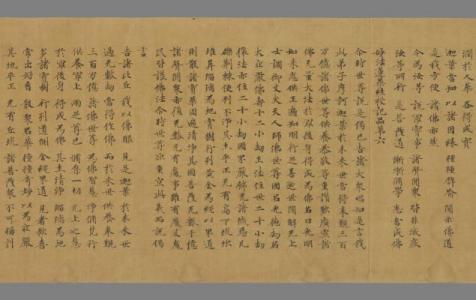 潤於人華 各得成實
迦葉當知 以諸因緣 種種譬喻 開示佛道
是我方便 諸佛亦然
今為汝等 說最實事 諸聲聞眾 皆非滅度
汝等所行 是菩薩道 漸漸修學 悉當成佛
妙法蓮華經授記品第六
尒時世尊說是偈已告諸大眾唱如是言我
此弟子摩訶迦葉於未來世當得奉覲三百
万億諸佛世尊供養恭敬尊重讚歎廣宣諸
佛无量大法於最後身得成為佛名曰光明
如來應供正遍知明行足善逝世間解无上
士調御丈夫天人師佛世尊國名光德劫名
大莊嚴佛壽十二小劫正法住世二十小劫
像法亦住二十小劫國界嚴飾无諸穢惡瓦
礫荊棘便利不淨其土平正无有高下坑坎
堆阜瑠璃為地寶樹行列黃金為繩以界道
側散諸寶華周遍清淨其國菩薩无量千億
諸聲聞眾亦復无數无有魔事雖有魔及魔
民皆護佛法尒時世尊欲重宣此義而說偈
言
告諸比丘 我以佛眼 見是迦葉 於未來世
過无數劫 當得作佛 而於來世 供養奉覲
三百万億 諸佛世尊 為佛智慧 淨修梵行
供養最上 二足尊已 修習一切 无上之慧
於最後身 得成為佛 其土清淨 瑠璃為地
多諸寶樹 行列道側 金繩界道 見者歡喜
常出好香 散眾名華 種種奇妙 以為莊嚴
其地平正 无有丘坑 諸菩薩眾 不可稱計